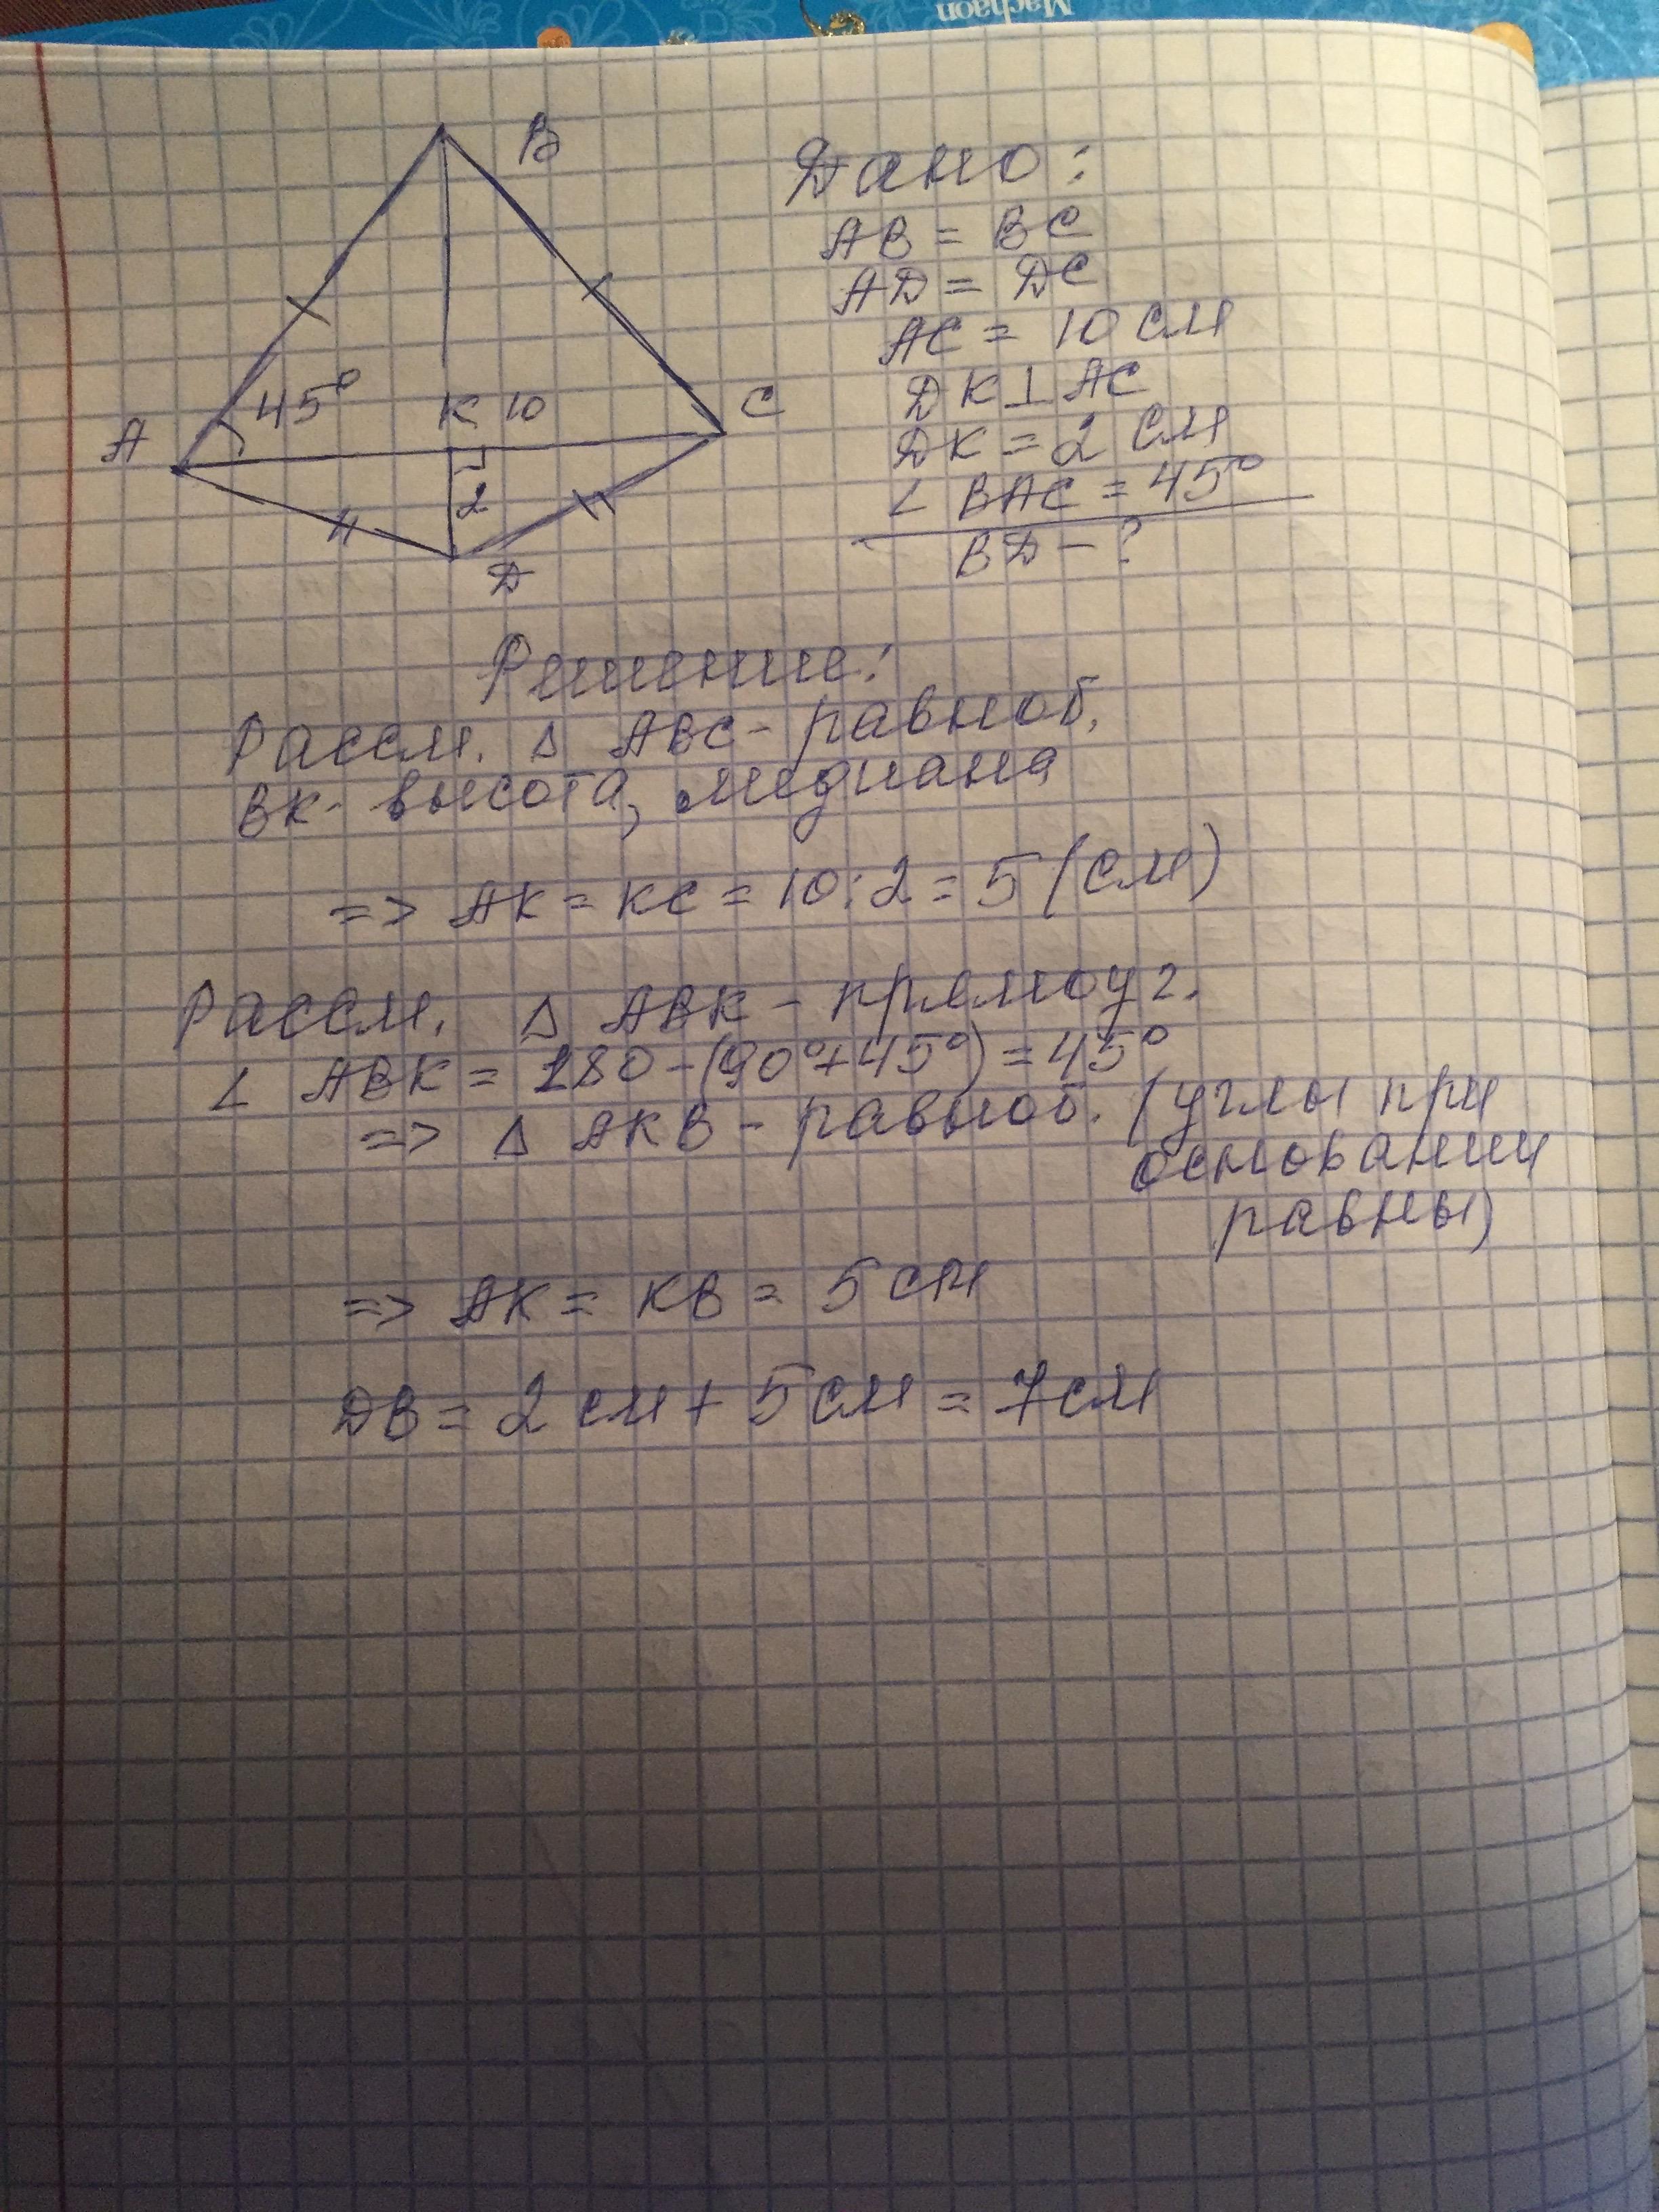 Machaon
B
45°
K 10
C
A
2
D
Дано:
AB = BC
AD = DC
AC = 10 см
DK ⊥ AC
DK = 2 см
∠ BAC = 45°
BD - ?
Решение:
Рассм. △ ABC - равноб.
BK - высота, медиана
=> AK = KC = 10 : 2 = 5 (см)
Рассм. △ ABK - прямоуг.
∠ ABK = 180 - (90° + 45°) = 45°
=> △ AKB - равноб. (углы при
основании
равны)
=> AK = KB = 5 см
DB = 2 см + 5 см = 7 см